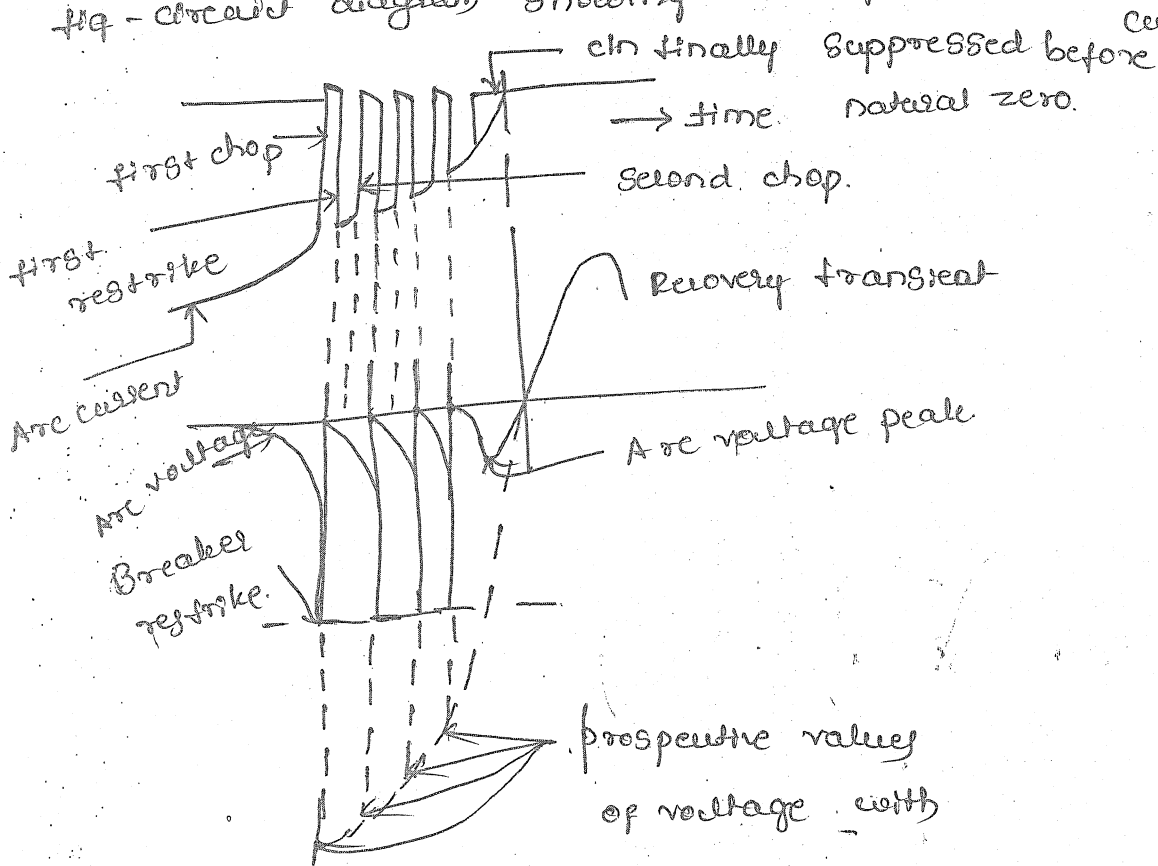 fig - circuit diagram showing
cin finally suppressed before
→ time. natural zero.
first chop
second chop.
first
restrike
Recovery transient
Arc current
Arc voltage
Arc voltage peak
Breaker
restrike.
prospective values
of voltage with